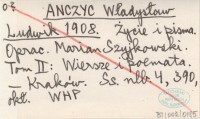 03 ANCZYC Władysław
Ludwik 1908. Życie i pisma.
Oprac. Marian Szyjkowski.
Tom II: Wiersze i poemata.
– Kraków. Ss. nlb. 4, 390,
okł. WHP